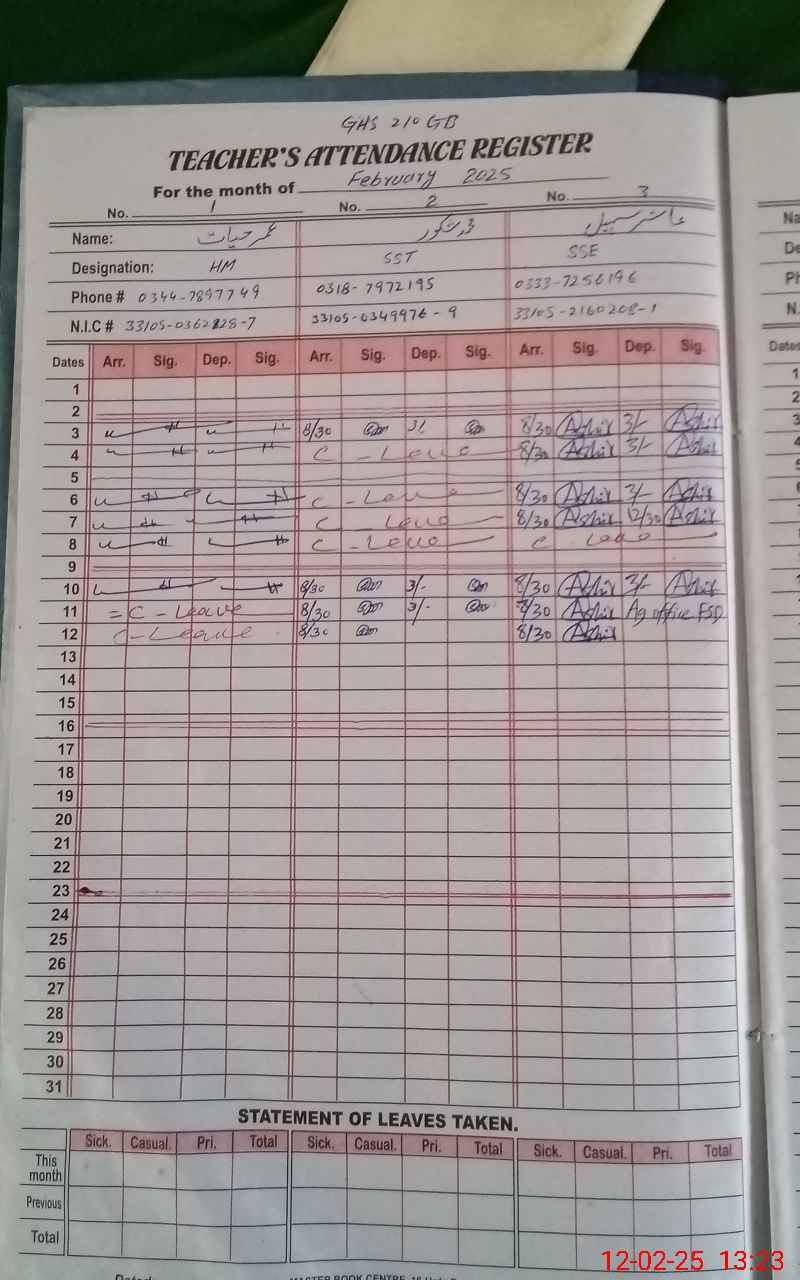 GHS 210 GB
TEACHER'S ATTENDANCE REGISTER
For the month of February 2025
No. 1 No. 2 No. 3
Name: عمر حیات محمد شکور عاشر سہیل
Designation: HM SST SSE
Phone # 0344-7897749 0318-7972195 0333-7256196
N.I.C # 33105-0362828-7 33105-0349976-9 33105-2160208-1
Dates Arr. Sig. Dep. Sig. Arr. Sig. Dep. Sig. Arr. Sig. Dep. Sig.
1
2
3 8/30 3/- 8/30 Ashir 3/- Ashir
4 C-Leave 8/30 Ashir 3/- Ashir
5
6 C-Leave 8/30 Ashir 3/- Ashir
7 C Leave 8/30 Ashir 12/30 Ashir
8 C-Leave C-Leave
9
10 8/30 3/- 8/30 Ashir 3/- Ashir
11 = C-Leave 8/30 3/- 8/30 Ashir Ag office FSD
12 C-Leave 8/30 8/30 Ashir
13
14
15
16
17
18
19
20
21
22
23
24
25
26
27
28
29
30
31
STATEMENT OF LEAVES TAKEN.
Sick. Casual. Pri. Total Sick. Casual. Pri. Total Sick. Casual. Pri. Total
This month
Previous
Total
12-02-25 13:23